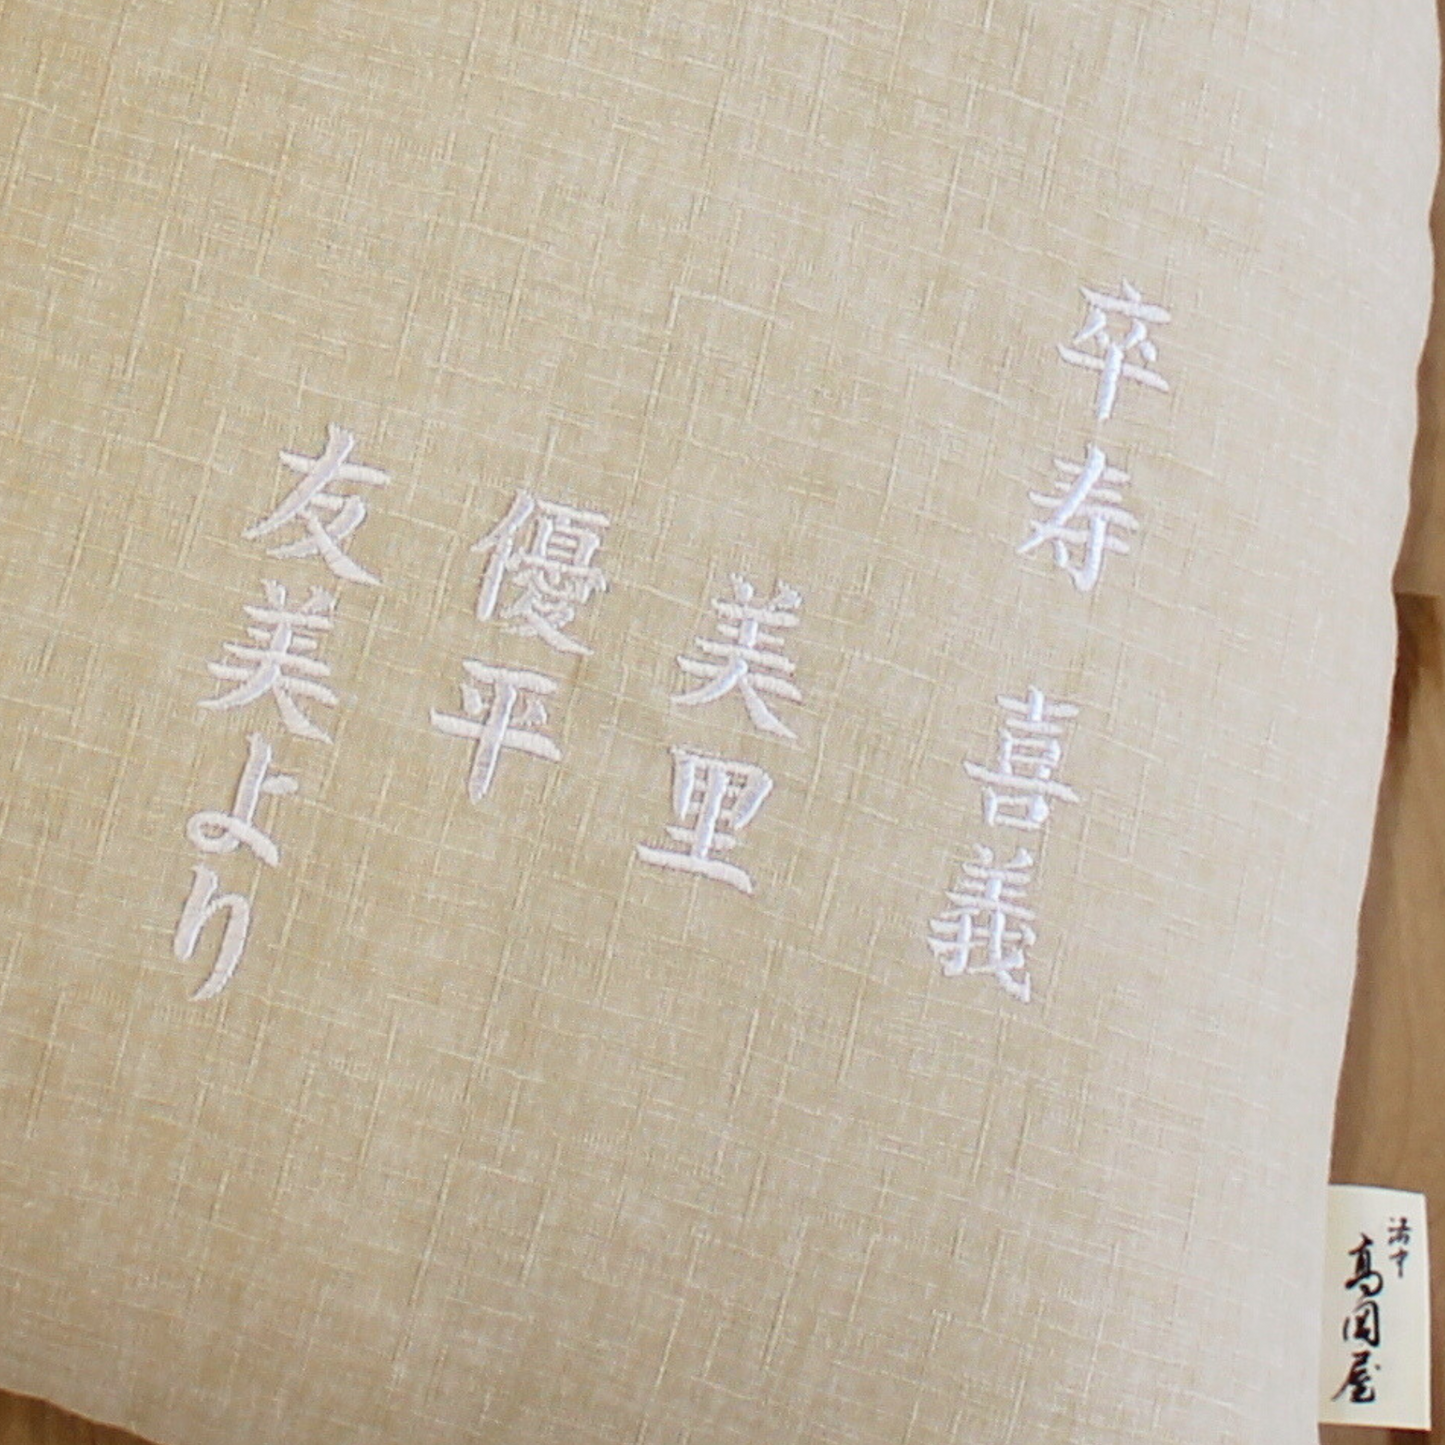 卒寿 喜義
美里
優平
友美より
洛中
高岡屋